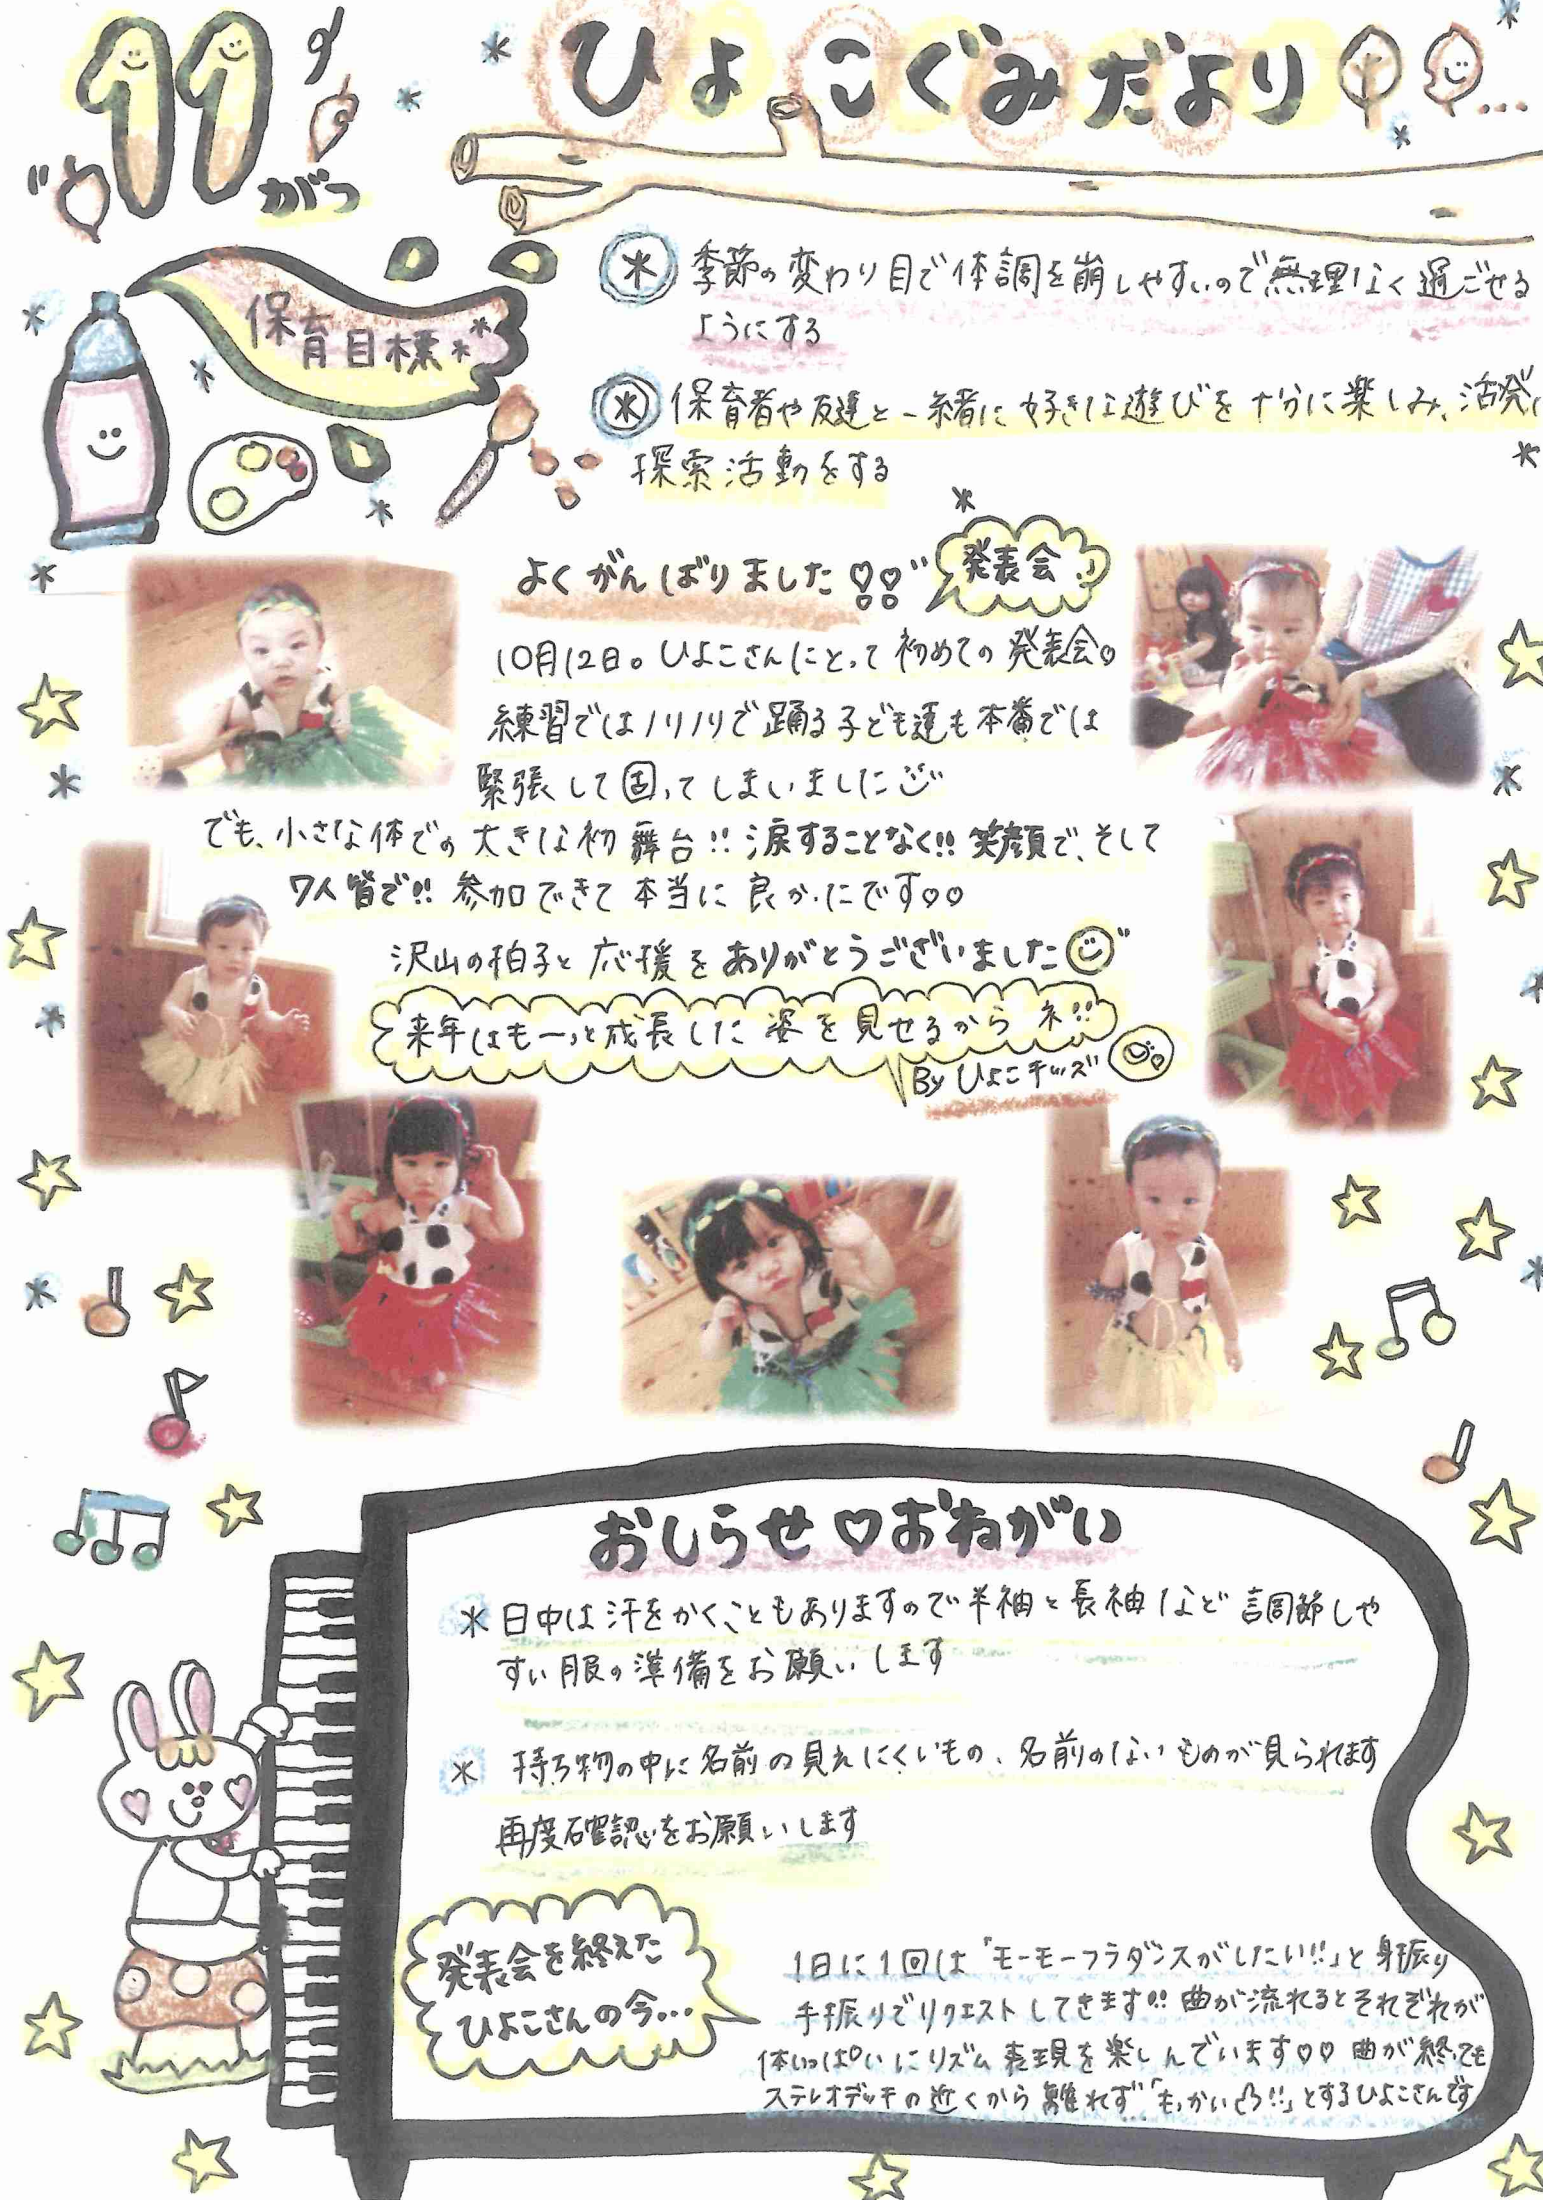 11がつ
ひよこぐみだより
保育目標
季節の変わり目で体調を崩しやすいので無理なく過ごせる
ようにする
保育者や友達と一緒に好きな遊びを十分に楽しみ、活発に
探索活動をする
よくがんばりました!!
発表会♪
10月12日。ひよこさんにとって初めての発表会♡
練習ではノリノリで踊る子ども達も本番では
緊張して固ってしまいました
でも、小さな体での大きな初舞台!!涙することなく!!笑顔で、そして
7人皆で!!参加できて本当に良かったです♡♡
沢山の拍手と応援をありがとうございました
来年はもーっと成長した姿を見せるからネ!!
By ひよこキッズ
おしらせ♡おねがい
*日中は汗をかくこともありますので半袖と長袖など調節しや
すい服の準備をお願いします
*持ち物の中に名前の見えにくいもの、名前のないものが見られます
再度確認をお願いします
発表会を終えた
ひよこさんの今...
1日に1回は「モーモーフラダンスがしたい!!」と身振り
手振りでリクエストしてきます!!曲が流れるとそれぞれが
体いっぱいにリズム表現を楽しんでいます♡♡曲が終っても
ステレオデッキの近くから離れず「もっかい!!」とするひよこさんです